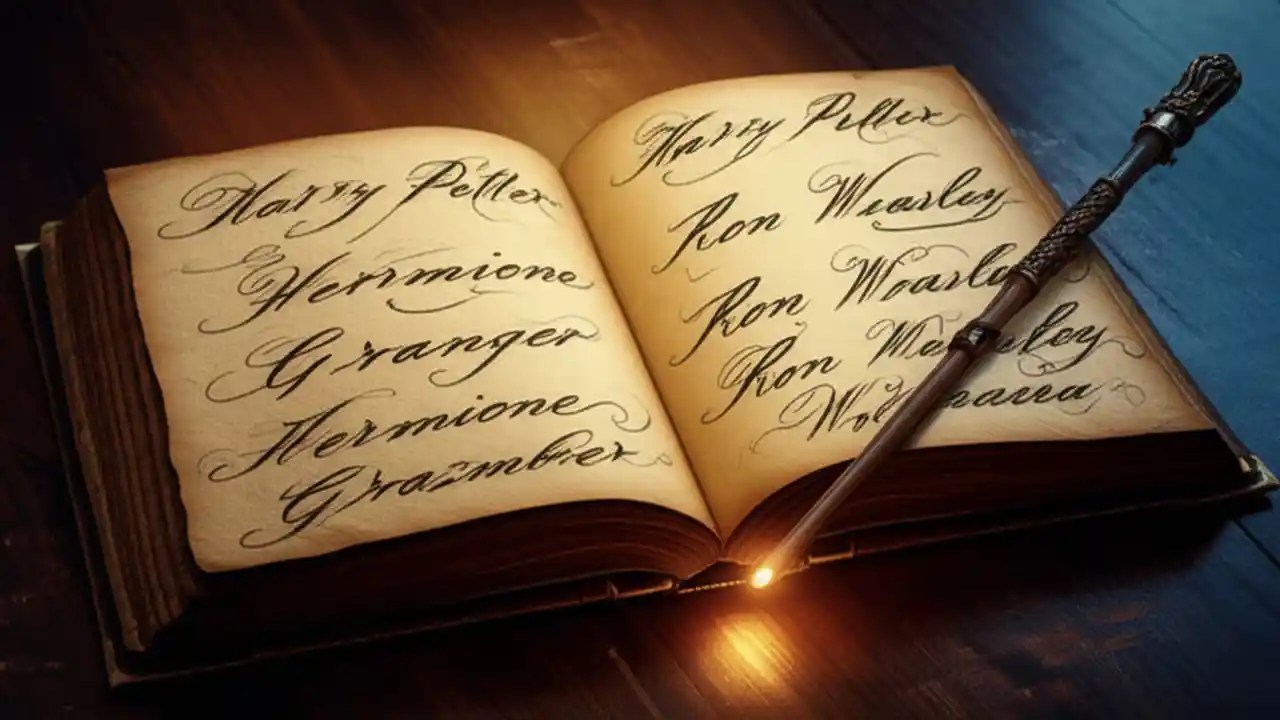 Harry Potter
Hermione
Granger
Hermione
Grazmber
Harry Potter
Ron Wearley
Ron Woarley
Ron